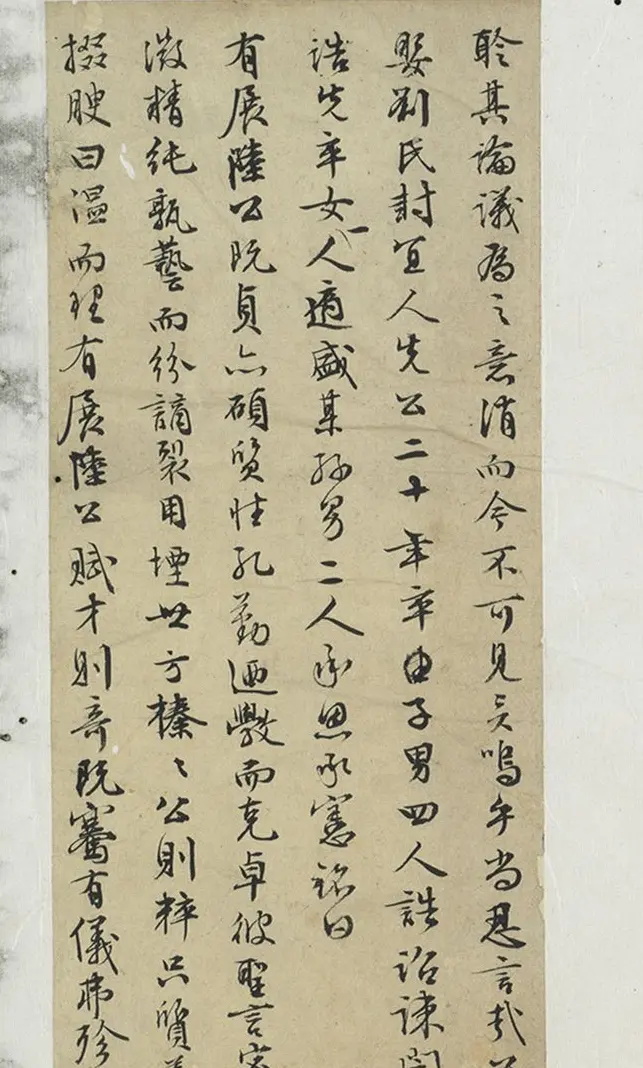 聆其論議為之意消而今不可見矣嗚乎尚忍言哉
娶劉氏封宜人先公二十年卒由子男四人誥詔諫
誥先卒女一人適盛某孫男二人承恩承憲銘曰
有展陸公既貞亦碩質性孔勤迺斅而克卓彼聖言
微精純孰藝而紛謫裂用堙世方榛榛公則粹只質
掇腴曰温而理有展陸公賦才則奇既騫有儀